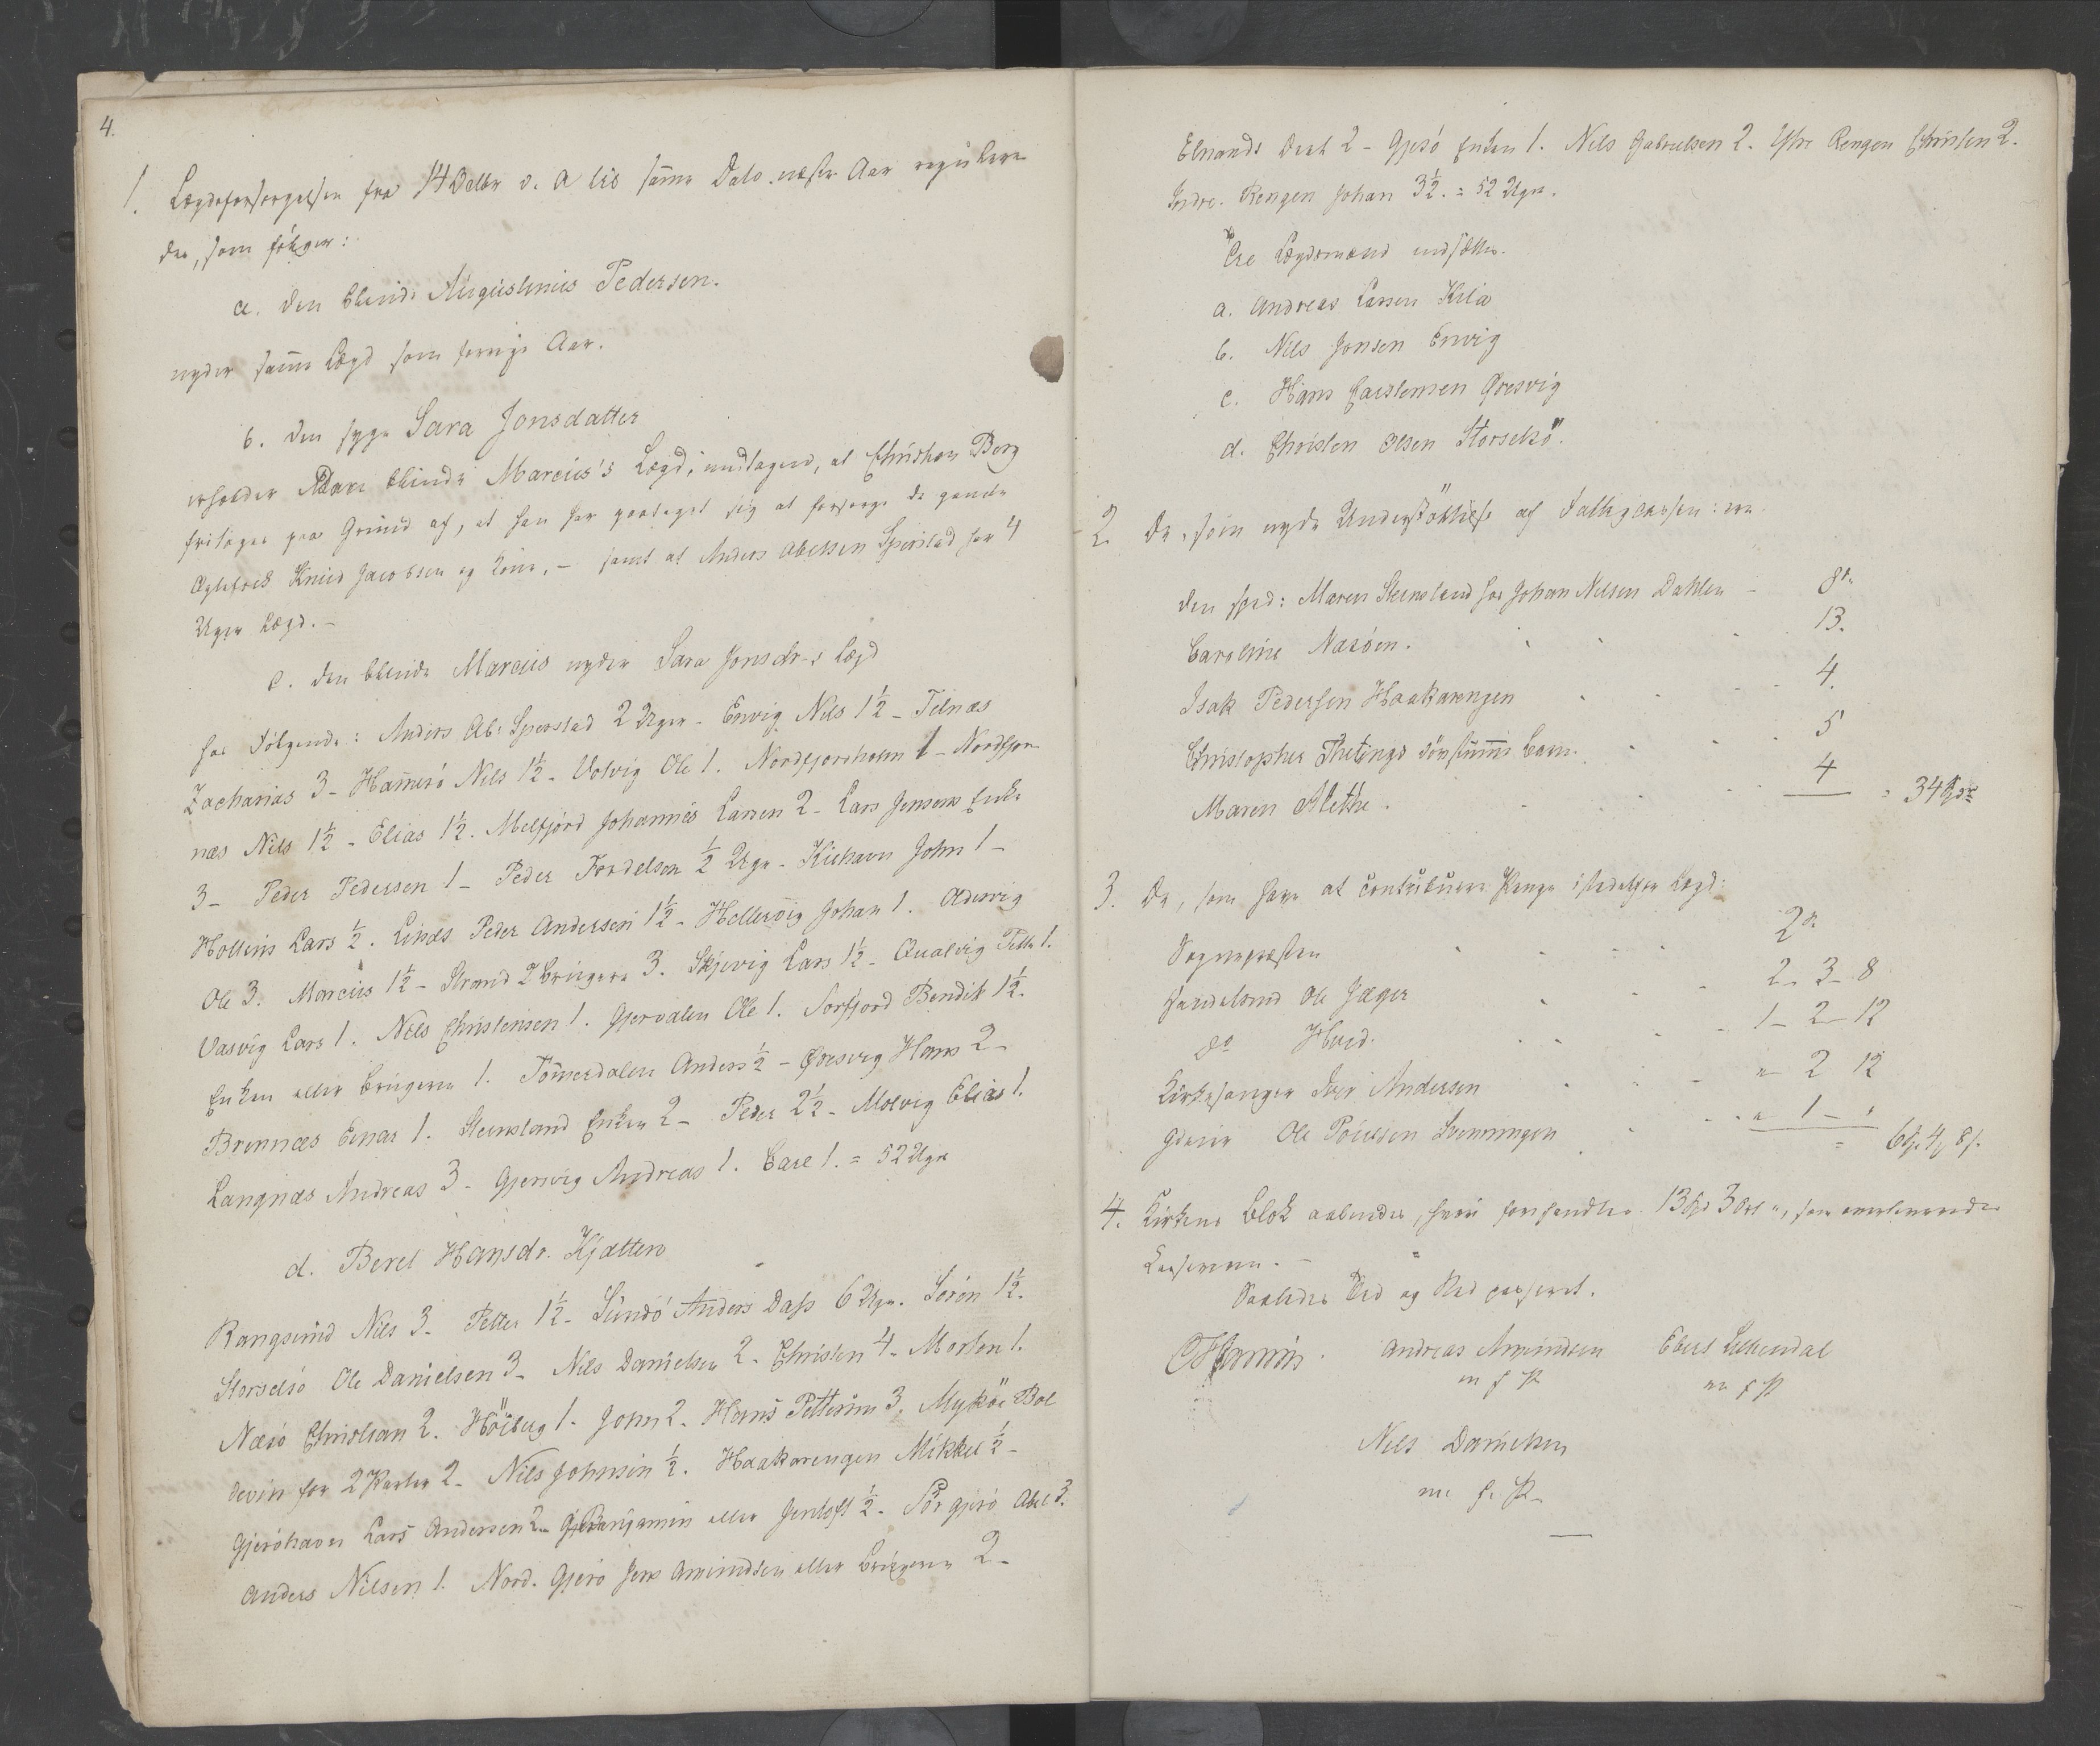 4.
1. Lægdeforsørgelsen fra 14 Octbr d. A til samme Dato næste Aar regulere-
des, som følger:
a. den blinde Augustinus Pedersen.
nyder samme Lægd som forrige Aar.
b. den syge Sara Jonsdatter
erholder blinde Marcius's Lægd, undtagen, at Christian Berg
fritages paa Grund af, at han har paataget sig at forsørge de gamle
Ægtefolk Knud Jacobsen og Kone, – samt at Anders Abelsen Sperstad har 4
Uger Lægd. –
c. den blinde Marcius nyder Sara Jonsdr-s Lægd
hos følgende: Anders Ab: Sperstad 2 Uger - Envig Nils 1½ - Telnæs
Zacharias 3 - Hammerö Nils 1½ - Valvig Ole 1. Nordfjordholm 1 - Nordfjor-
næs Nils 1½ - Elias 1½. Melfjord Johannes Larsen 2 - Lars Jensens Enke
3 - Peder Pedersen 1 - Peder Fordelsen ½ Uge - Kilhavn John 1 -
Hollein Lars ½. Linæs Peder Anderssen 1½ - Hellervig Johan 1. Oldervig
Ole 3. Marcius 1½ - Strand 2 Brugere 3. Skjevig Lars 1½ - Qualvig Petter 1.
Vasvig Lars 1. Nils Christensen 1. Gjervalen Ole 1. Sorfjord Bendik 1½.
Enken eller Brugeren 1. Tømmerdalen Anders ½ - Øresvig Hans 2 -
Brennæs Einar 1. Stensland Enken 2 - Peder 2½ - Molvig Elias 1.
Langnæs Andreas 3 - Gjersvig Andreas 1. Carl 1. = 52 Uger
d. Beret Hansdr. Kjatten
Rangsund Nils 3 - Petter 1½ - Sundö Anders Dass 6 Uger. Sören 1½.
Storselsö Ole Danielsen 3 - Nils Danielsen 2 - Christen 4 - Morten 1.
Næsö Christian 2. Höiberg 1 - John 2 - Hans Petterson 3. Mykön Bol
devin for 2 Parter 2 - Nils Johnsen ½. Haakarengen Mikkel ½ -
Gjeröhavn Lars Andersen 2 - Benjamin eller Jentoft ½ - Sör Gjerö Abel 3.
Anders Nilsen 1. Nord. Gjerö Jens Amundsen eller Brugeren 2 -
Elnands Dreet 2 - Gjesö Enken 1. Nils Gabrielsen 2. Ythre Rengen Christen 2.
Indre. Rengen Johan 3½. = 52 Uger.
Til Lægdsmænd indsættes.
a. Andreas Larsen Kila
b. Nils Jonsen Envig
c. Hans Carstensen Øresvig
d. Christen Olsen Storselsö.
2. De, som nyde Understöttelse af Fattigcassen: ere
den sped: Maren Stensland hos Johan Nilsen Dahlen - 8 Sp
Caroline Næsöen. 13.
Isak Pedersen Haakarengen 4.
Christopher Thetings dövstumme Barn. 5
Maren Alethe. 4 = 34 Spdr
3. De, som have at contribuere Penge istedetfor Lægd:
Sognepræsten 2 Sp
Handelsmd Ole Jæger 2 - 3 - 8
do Hved. 1 - 2 - 12
Kirkesanger Iver Andersen " 2 12
Gdeier Ole Poulsen Svenningen " 1 - " = 6 Sp 4 8 s.
4. Kirkens Blok aabnedes, hvori forefandtes 13 Spd 3 Ort ", som overleveredes
Kassereren. –
Saaledes Tid og Sted passeret.
Andreas Amundsen Ebert Lillendal
m f P m f P
Nils Danielsen
m. f. P.